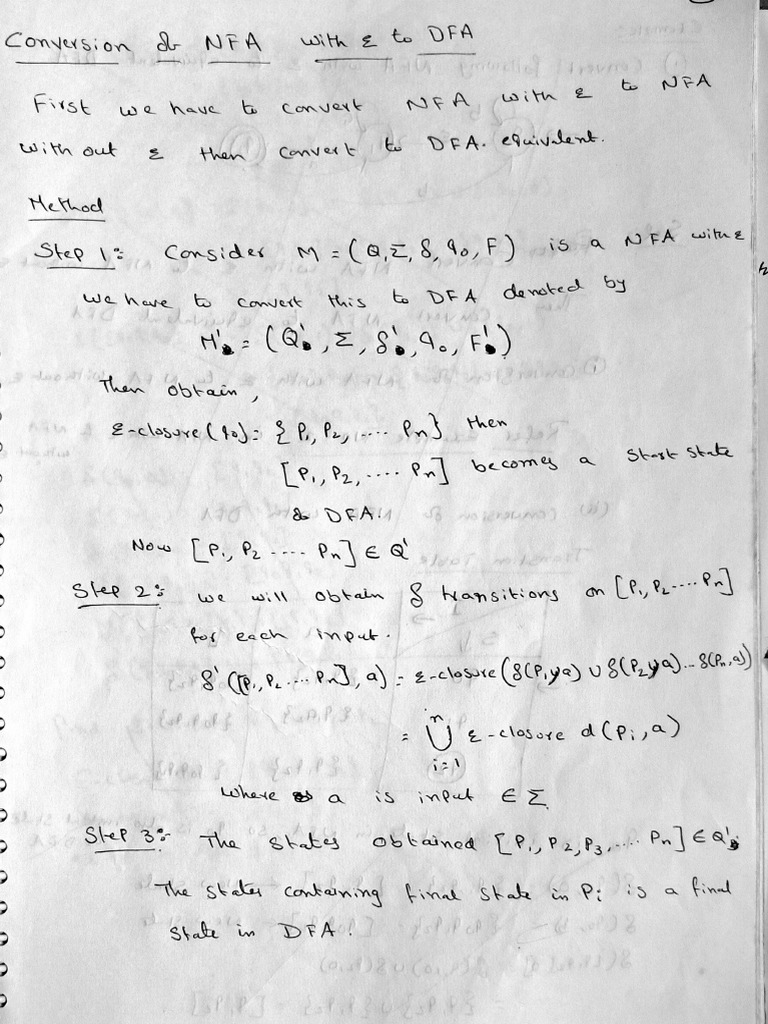 Conversion of NFA with ε to DFA
First we have to convert NFA with ε to NFA
with out ε then convert to DFA. equivalent.
Method
Step 1: Consider M = (Q, Σ, δ, q0, F) is a NFA with ε
we have to convert this to DFA denoted by
M' = (Q', Σ, δ', q0, F')
Then obtain,
ε-closure(q0) = {P1, P2, .... Pn} then
[P1, P2, .... Pn] becomes a start state
of DFA.
Now [P1, P2 .... Pn] ∈ Q'
Step 2: we will obtain δ transitions on [P1, P2 .... Pn]
for each input.
δ'([P1, P2 .... Pn], a) = ε-closure(δ(P1, a) ∪ δ(P2, a) ... δ(Pn, a))
= ⋃ⁿᵢ₌₁ ε-closure d(Pi, a)
where a is input ∈ Σ
Step 3: The states obtained [P1, P2, P3, .... Pn] ∈ Q'
The states containing final state in Pi is a final
state in DFA.